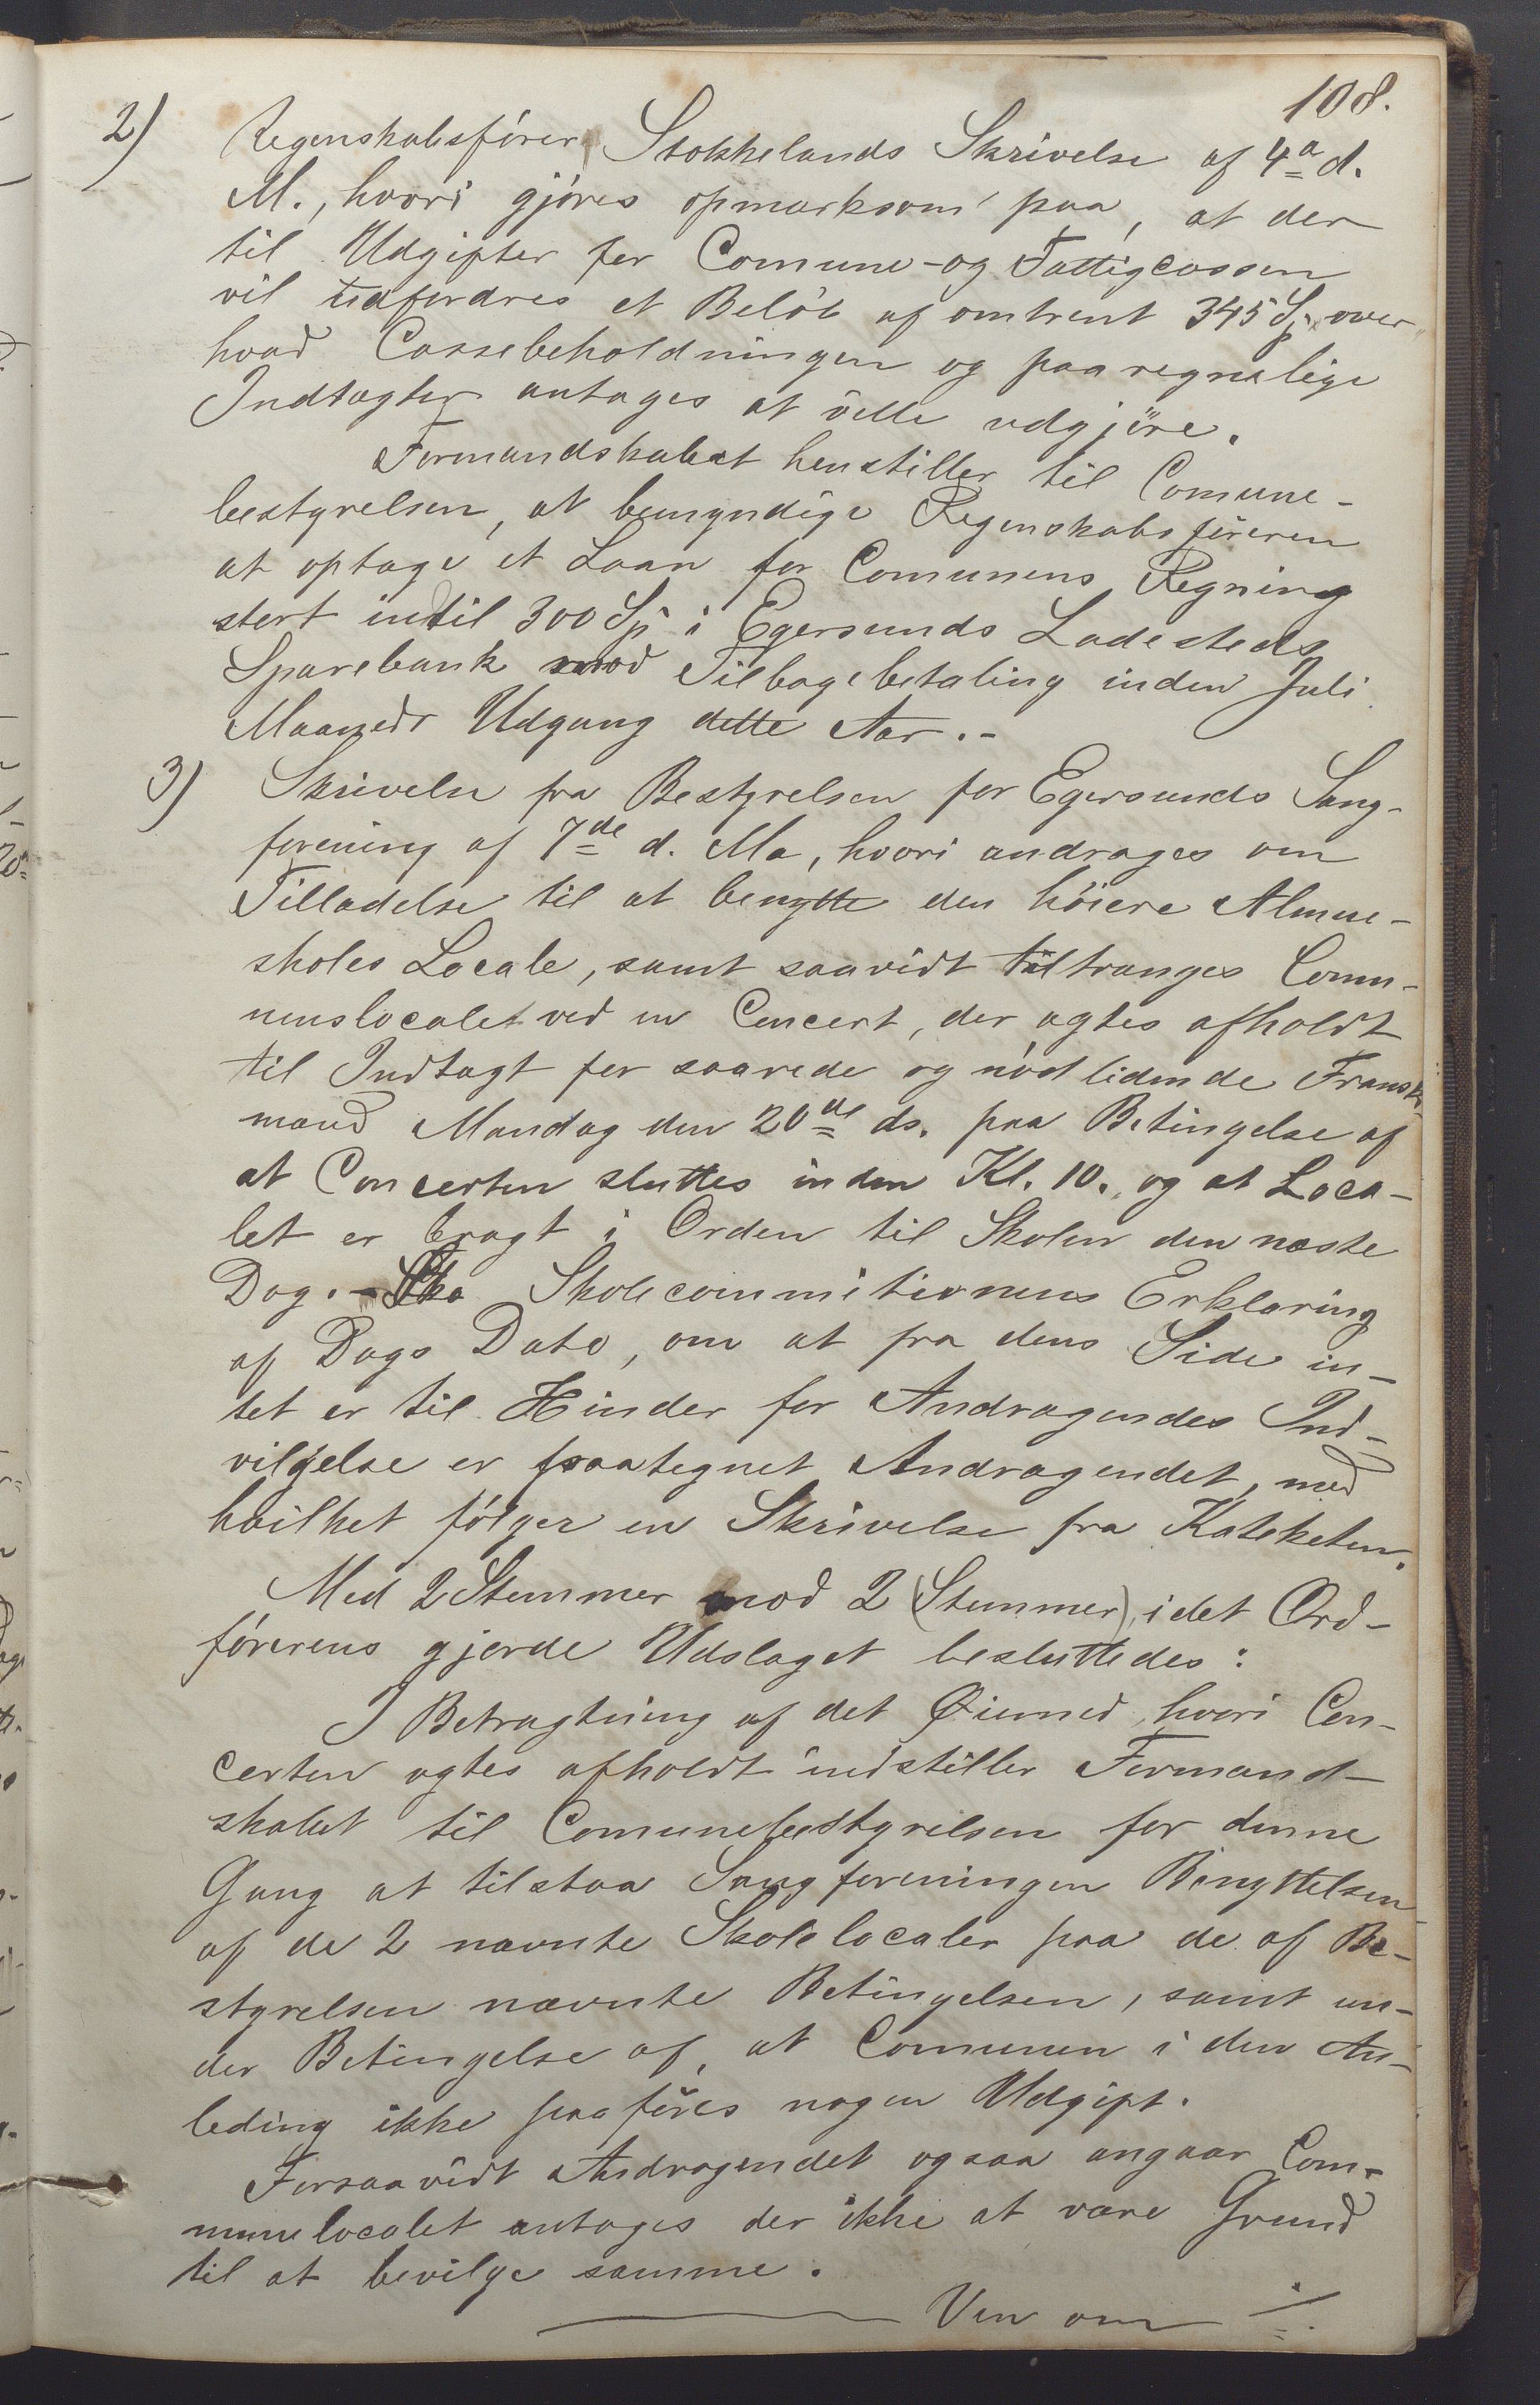 108.
2) Regenskabsfører Stokkelands Skrivelse af 4a d.
M., hvori gjöres opmærksom paa, at der
til Udgifter for Comune- og Fattigcassen
vil udfordres et Belöb af omtrent 345 Sp over
hvad Cassebeholdningen og paaregnelige
Indtægter antages at ville udgjöre.
Formandskabet henstiller til Comune-
bestyrelsen, at bemyndige Regenskabsföreren
at optage et Laan for Comunens Regning
stort indtil 300 Sp i Egersunds Ladesteds
Sparebank mod Tilbagebetaling inden Juli
Maaneds Udgang dette Aar.-
3) Skrivelse fra Bestyrelsen for Egersunds Sang-
forening af 7de d. Ma, hvori andrages om
Tilladelse til at benytte den höiere Almue-
skoles Locale, samt saavidt tiltrænges Comu-
nenslocalet ved en Concert, der agtes afholdt
til Indtægt for saarede og nödlidende Fransk-
mænd Mandag den 20de ds. paa Betingelse af
at Concerten sluttes inden Kl. 10. og at Loca-
let er bragt i Orden til Skolen den næste
Dag. - Skolecommitionens Erklæring
af Dags Dato, om at fra dens Side in-
tet er til Hinder for Andragendes Ind-
vilgelse er paategnet Andragendet, med
hvilket fölger en Skrivelse fra Kateketen.
Med 2 Stemmer mod 2 (Stemmer), idet Ord-
førerens gjorde Udslaget besluttedes:
I Betragtning af det Øiemed, hvori Con-
certen agtes afholdt indstiller Formand-
skabet til Comunebestyrelsen for denne
Gang at tilstaa Sangforeningen Benyttelsen
af de 2 nævnte Skolelocaler paa de af Be-
styrelsen nævnte Betingelsen, samt un-
der Betingelse af, at Comunen i den An-
leding ikke paaföres nogen Udgift.
Forsaavidt Andragendet ogsaa angaar Com-
munelocalet antages der ikke at være Grund
til at bevilge samme.
Ven om ./.